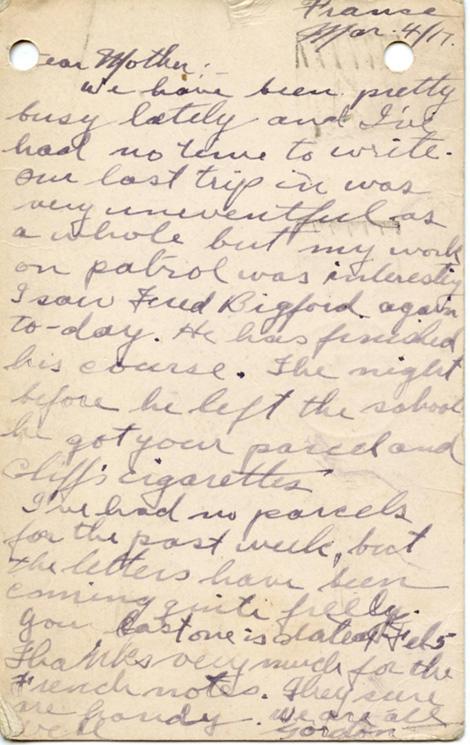 France
Mar. 4/17.
Dear Mother:-
We have been pretty
busy lately and I've
had no time to write.
Our last trip in was
very uneventful as
a whole but my work
on patrol was interesting
I saw Fred Bigford again
to-day. He has finished
his course. The night
before he left the school
he got your parcel and
Cliff's cigarettes
I've had no parcels
for the past week, but
the letters have been
coming quite freely.
your last one is dated Feb 5
Thanks very much for the
French notes. They sure
are handy. We are all
well Gordon